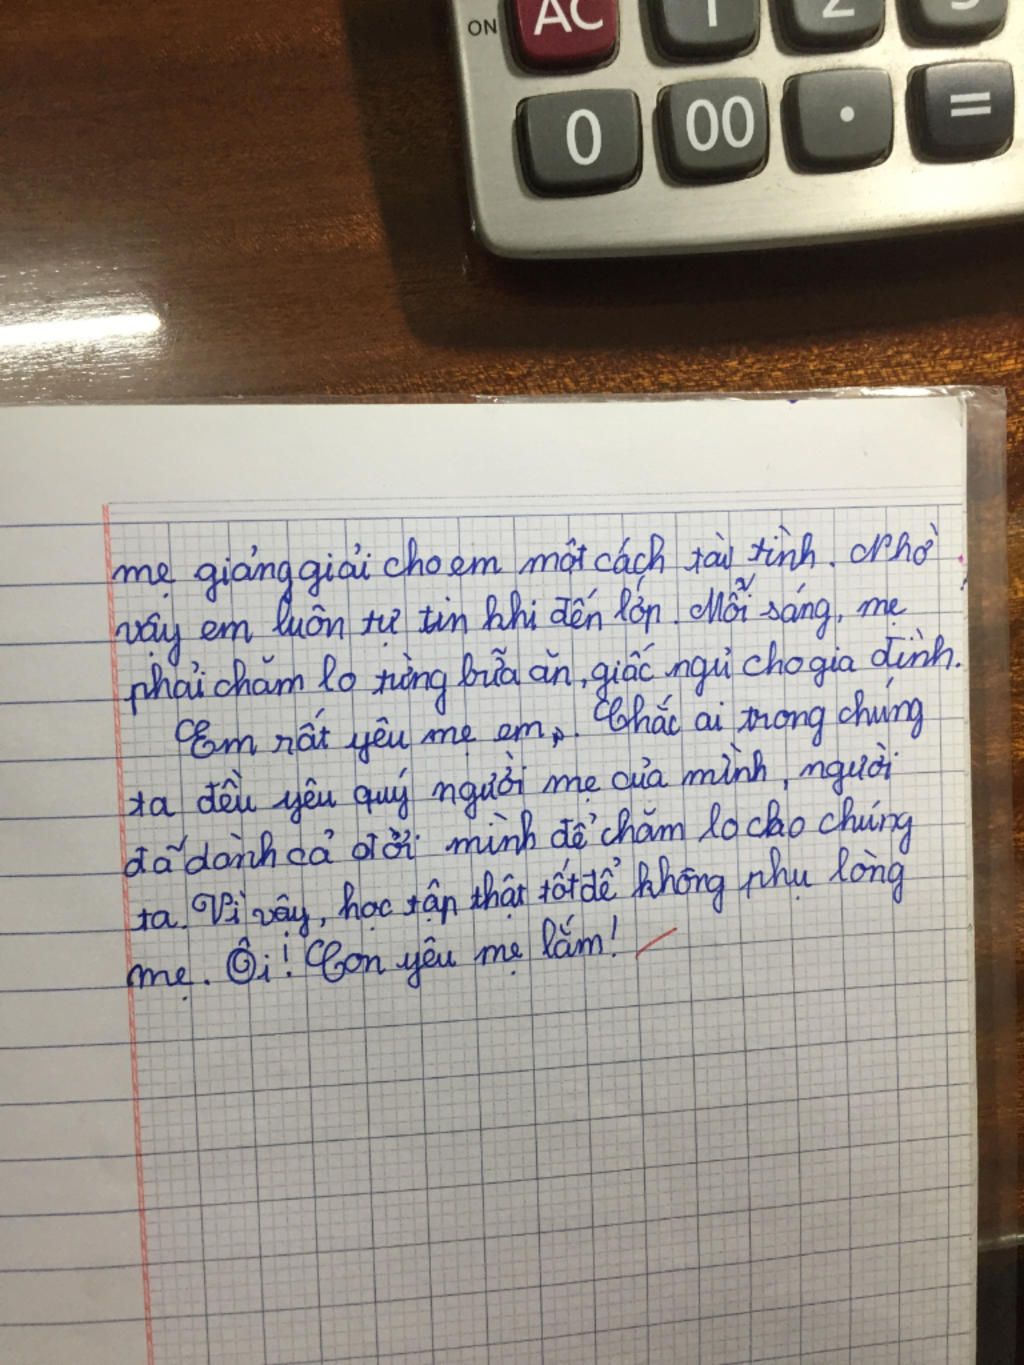 ON AC 1 2 3
0 00 . =
mẹ giảng giải cho em một cách tài tình. Nhờ
vậy em luôn tự tin khi đến lớp. Mỗi sáng, mẹ
phải chăm lo từng bữa ăn, giấc ngủ cho gia đình.
Em rất yêu mẹ em. Chắc ai trong chúng
ta đều yêu quý người mẹ của mình, người
đã dành cả đời mình để chăm lo cho chúng
ta. Vì vậy, học tập thật tốt để không phụ lòng
mẹ. Ôi! Con yêu mẹ lắm!